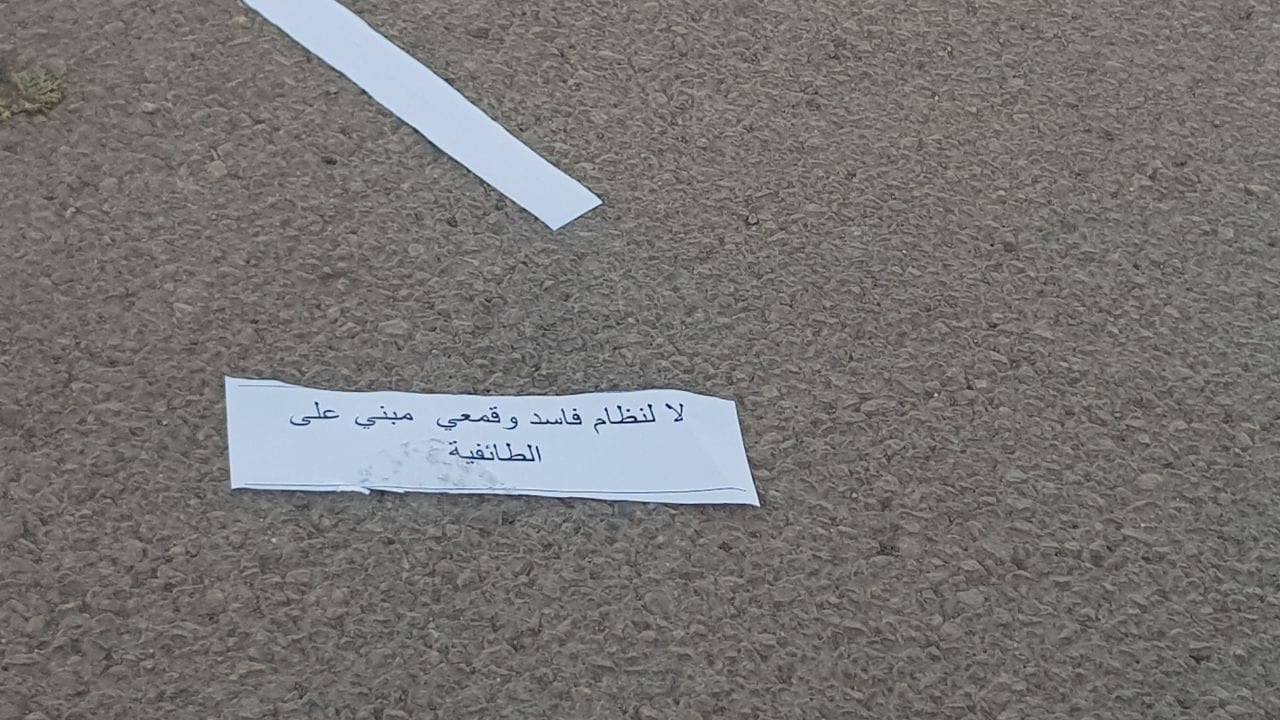 لا لنظام فاسد وقمعي مبني على
الطائفية